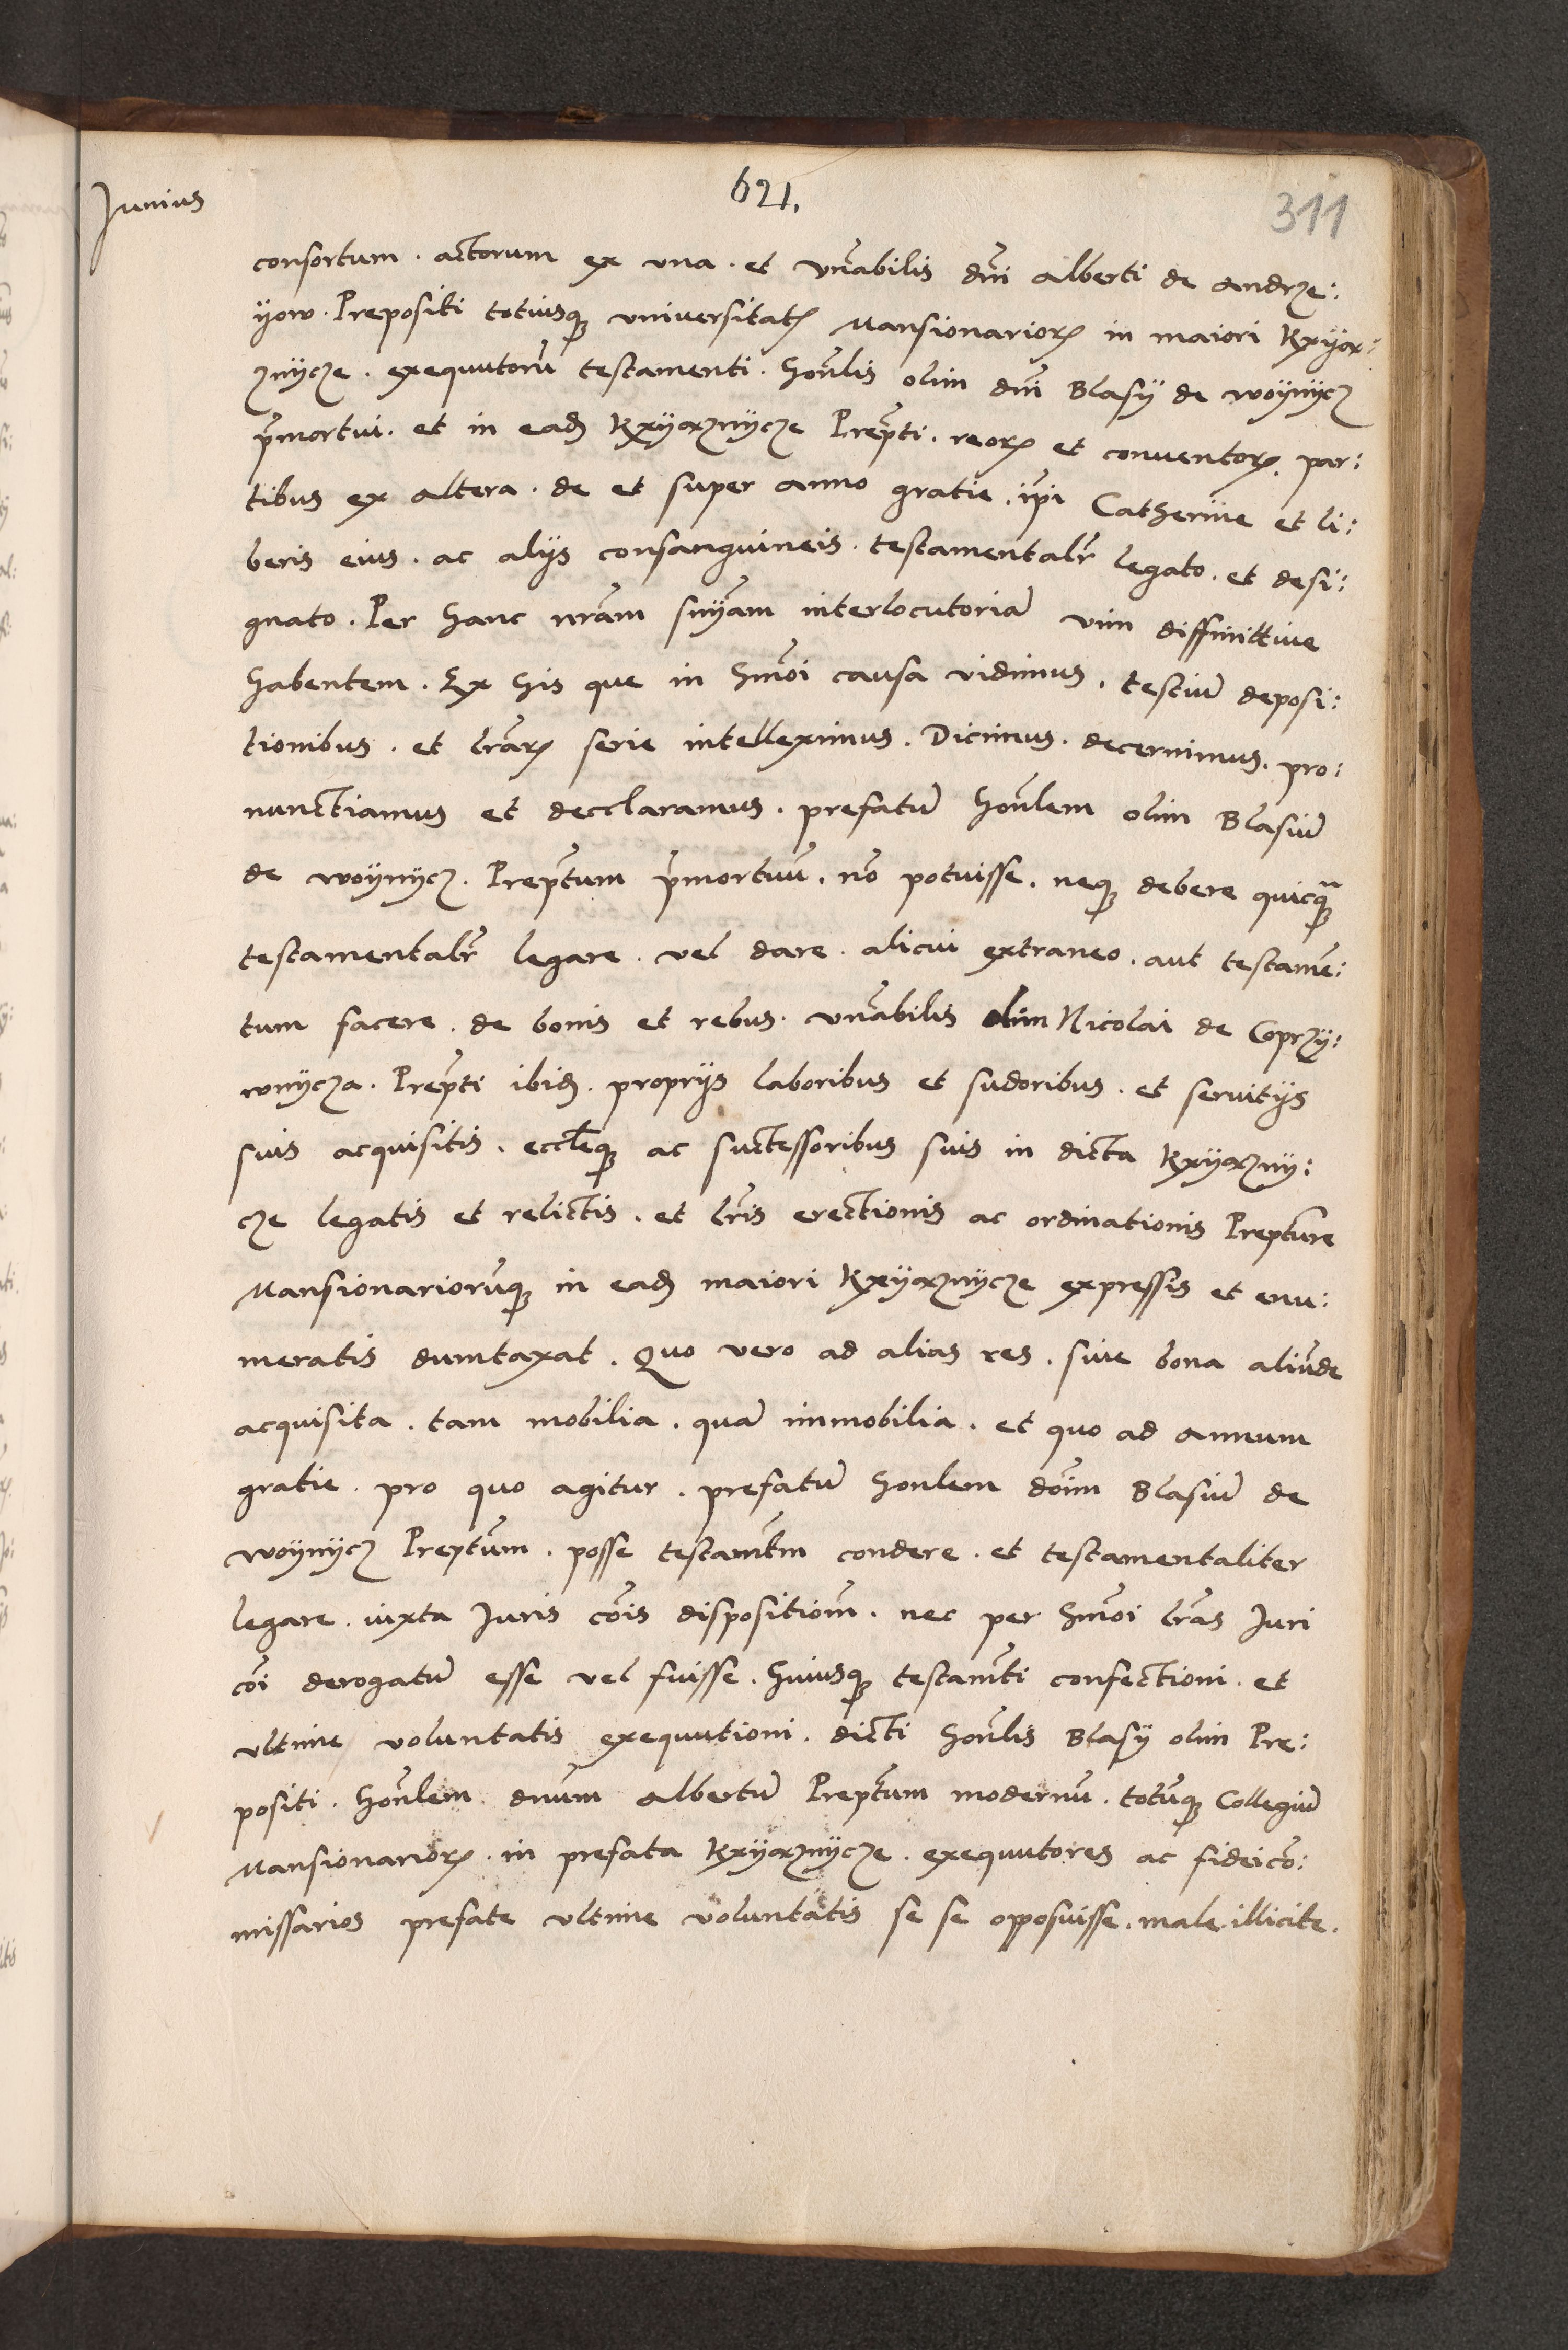 Junius
621.
311
consortum . actorum ex una . et vn̄abilis dn̄i Alberti de Andrze:
yow . Prepositi totiusq̨ universitatꝭ Mansionarioꝝ in maiori Kxyąx:
znycze . exequutorū testamenti . hon̄lis olim dn̄i Blasÿ de Woynycz
p̄mortui . et in eadꝫ Kxyąxznycze Prep̄ti . reoꝝ et conventoꝝ . par:
tibus ex altera . de et super anno gratie . ip̄i Catherine et li:
beris eius . ac alÿs consanguineis . testamentalr̄ legato . et desi:
gnato . Per hanc nr̄am sn̄yam interlocutoriā vim diffinittive
habentem . Ex his que in hm̄oi causa vidimus . testiū deposi:
tionibus . et lr̄aꝝ serie intelleximus . Dicimus . decernimus . pro:
nunctiamus et decclaramus . prefatū hon̄lem olim Blasiū
de Woynycz . Prep̄tum p̄mortuū . nō potuisse . neq̨ debere quicq̨̄
testamentalr̄ legare . vel dare . alicui extraneo . aut testamē:
tum facere . de bonis et rebus . vn̄abilis olim Nicolai de Coprzy:
wnycza . Prep̄ti ibidꝫ . proprÿs laboribus et sudoribus . et servitÿs
suis acquisitis . eccl̄eq̨ ac suctessoribus suis in dicta Kxyąxzny:
cze legatis et relictis . et lr̄is erectionis ac ordinationis Prept̄ure
Mansionariorūq̨ in eadꝫ maiori Kxyąxznycze expressis et enu:
meratis dumtaxat . Quo vero ad alias res . sive bona aliūde
acquisita . tam mobilia . quā immobilia . et quo ad annum
gratie . pro quo agitur . prefatū honlem dōim Blasiū de
Woynycz Prep̄tum . posse testam̄tm condere . et testamentaliter
legare . iuxta Juris cōis dispositiom̄ . nec per hm̄oi lr̄as Juri
cōi derogatū esse vel fuisse . huiusq̨ testam̄ti confectioni . et
ultime voluntatis exequutioni . dicti hon̄lis Blasÿ olim Pre:
positi . hon̄lem dn̄um Albertū Prep̄tum modernū . totūq̨ Collegiū
Mansionarioꝝ . in prefata Kxyąxznycze . exequutores ac fideicō:
missarios prefate ultime voluntatis se se opposuisse . male . illicite .